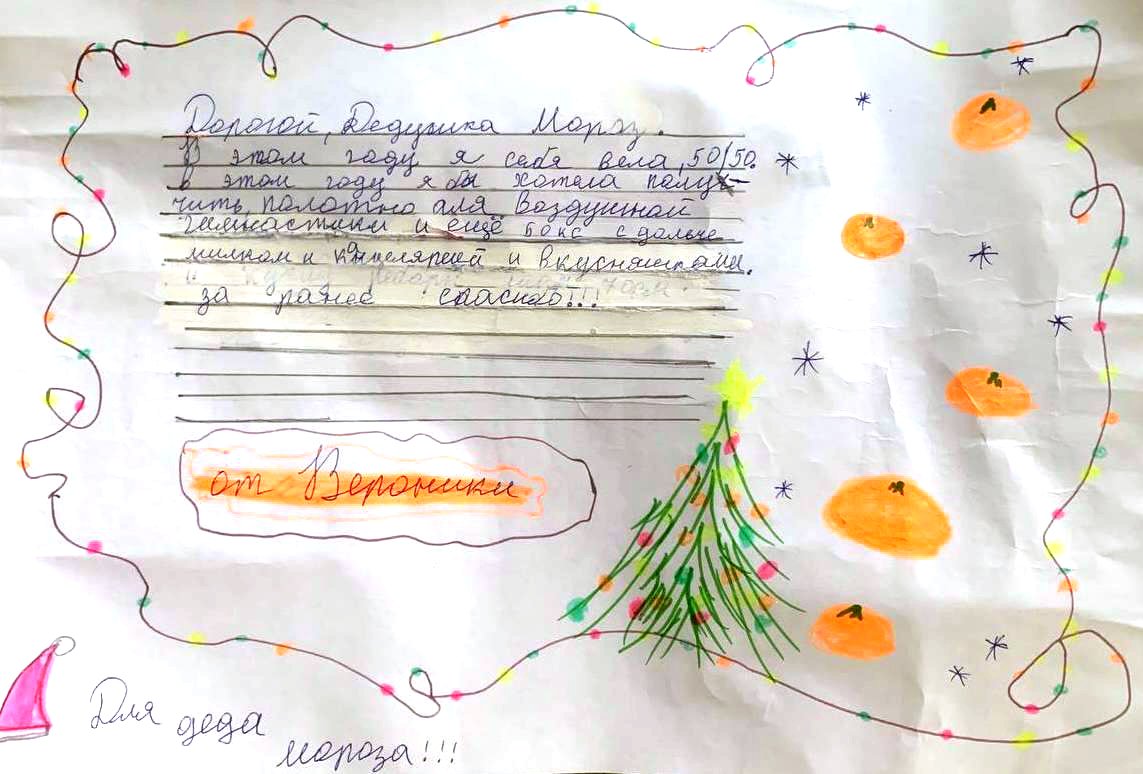 Дорогой, Дедушка Мороз.
В этом году я себя вела, 50/50.
в этом году я бы хотела полу-
чить, полотно для воздушной
гимнастики и ещё бокс с дольче
милком и канцелярией и вкусняшками.
за ранее спасибо!!!
от Вероники
Для деда
мороза!!!